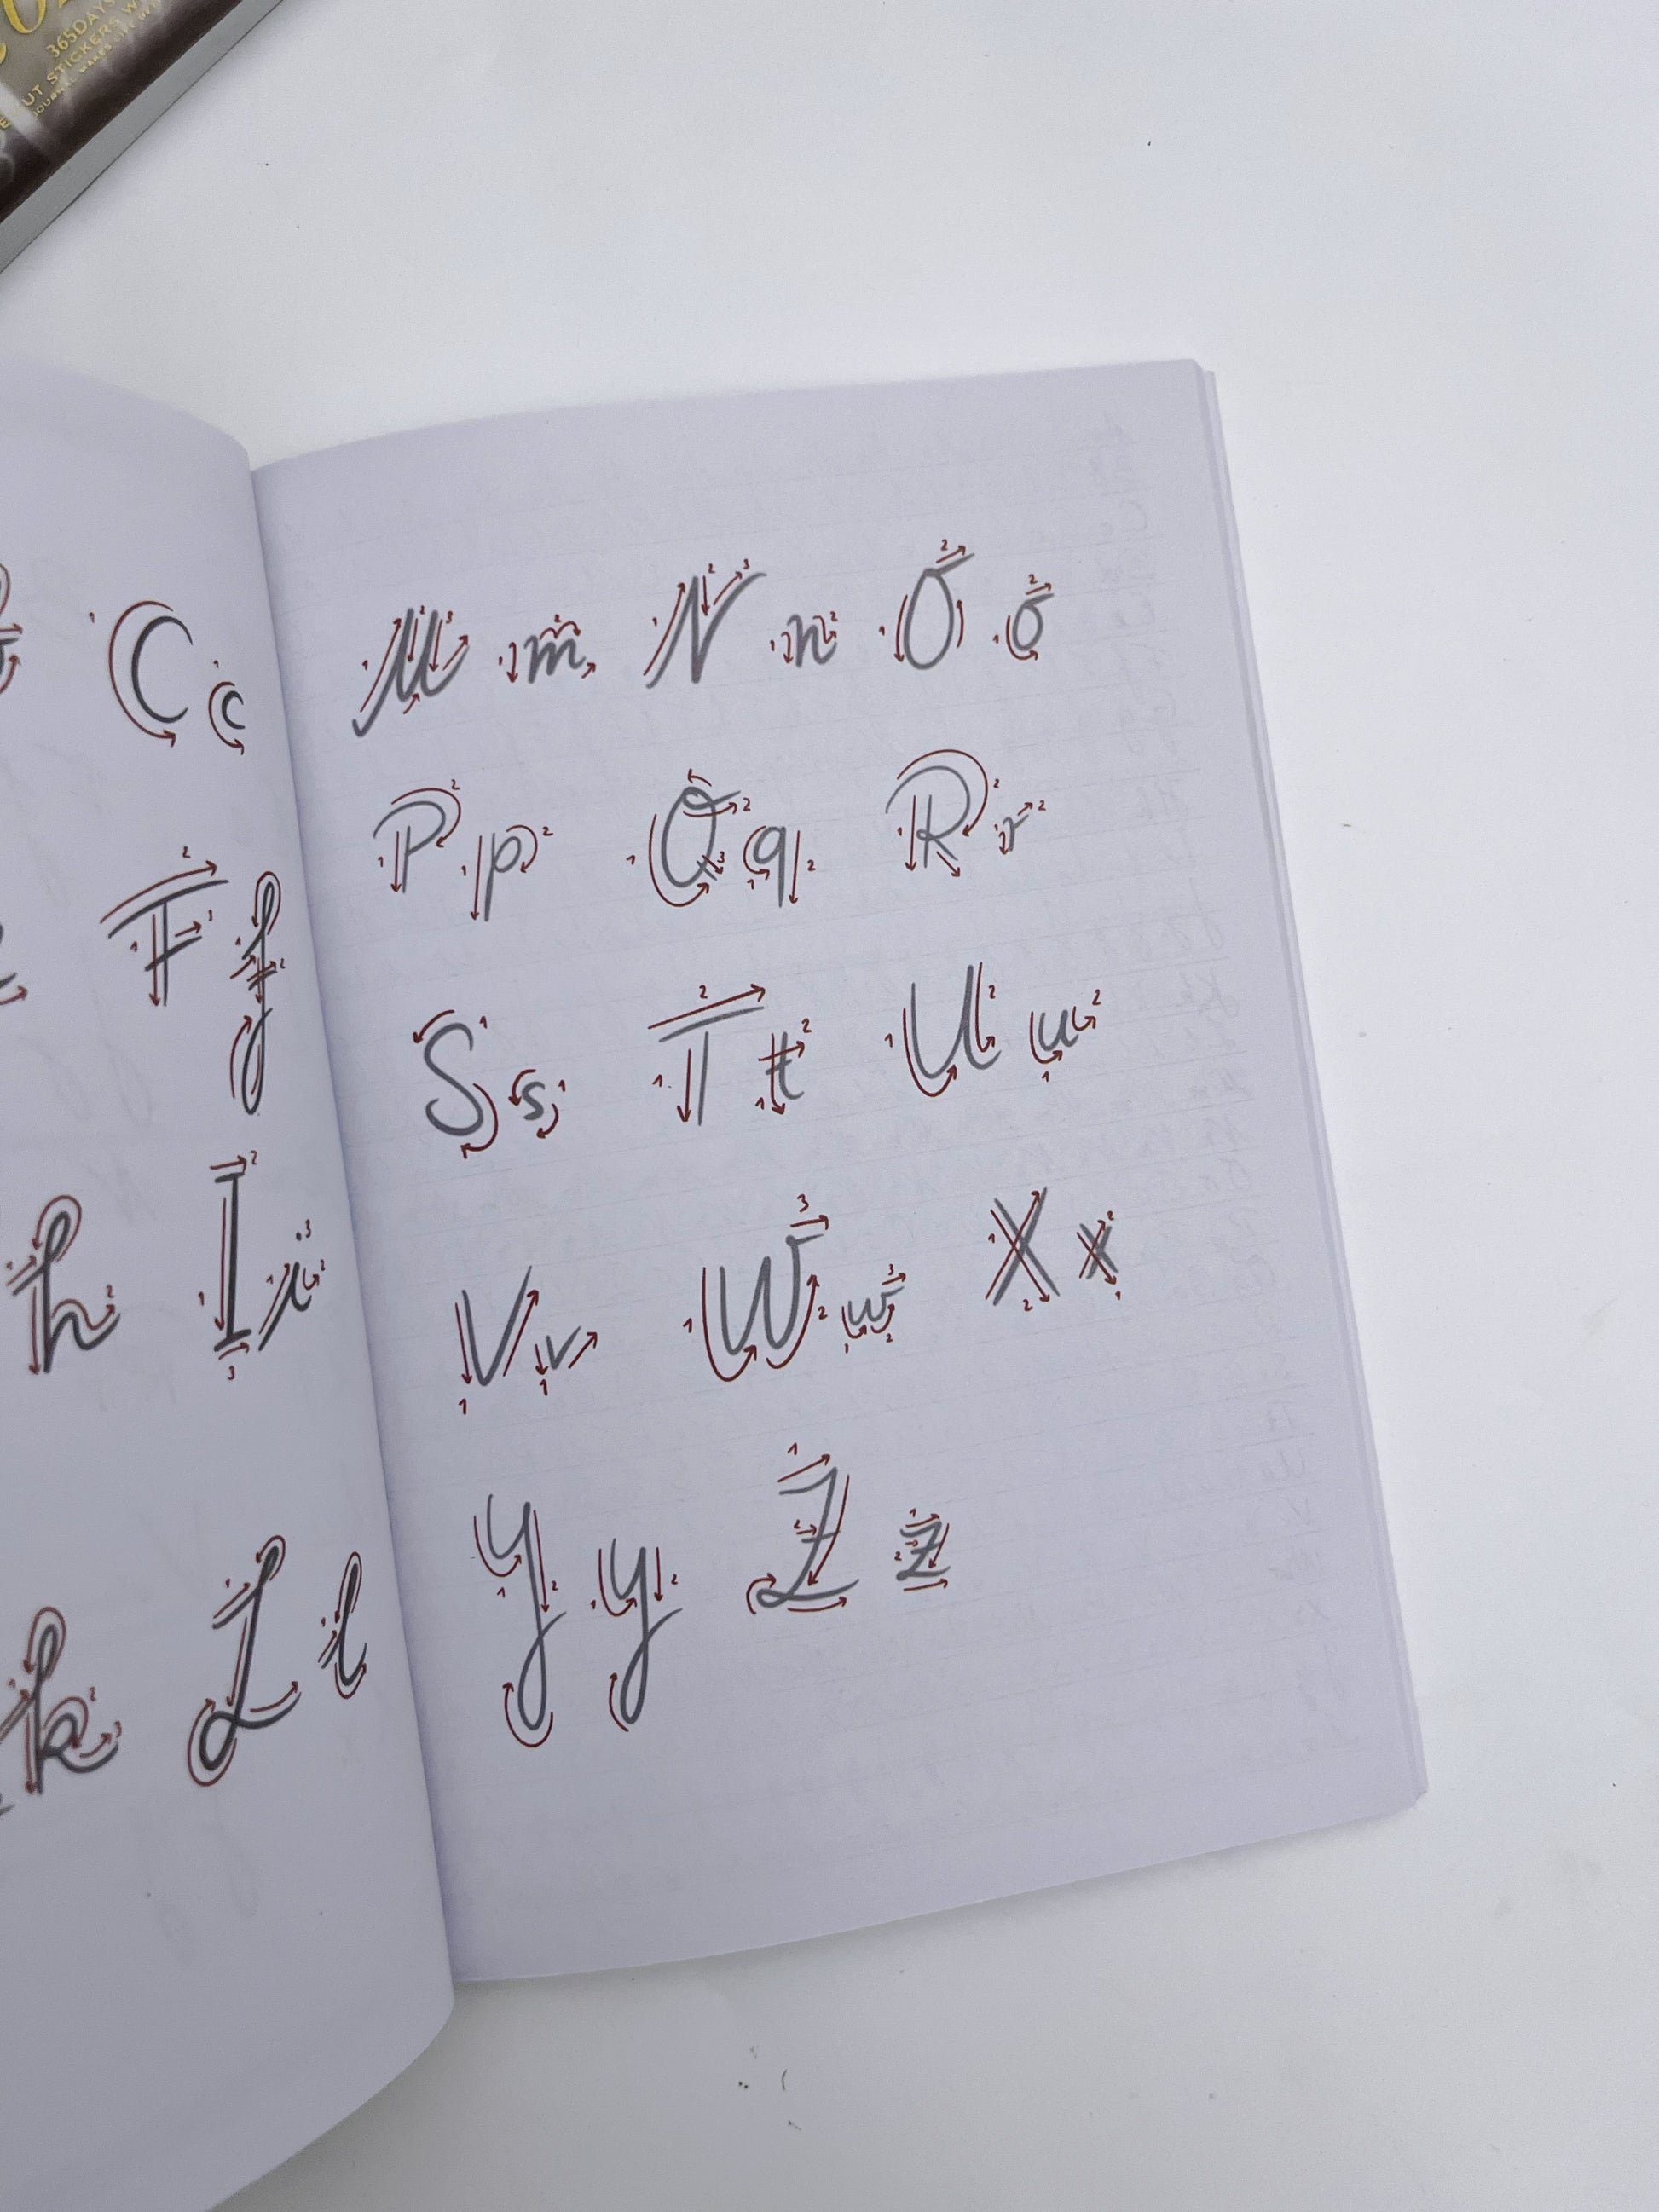 365DAYS
STICKERS
C c
F f
h I i
k L l
M m N n O o
P p Q q R r
S s T t U u
V v W w X x
Y y Z z